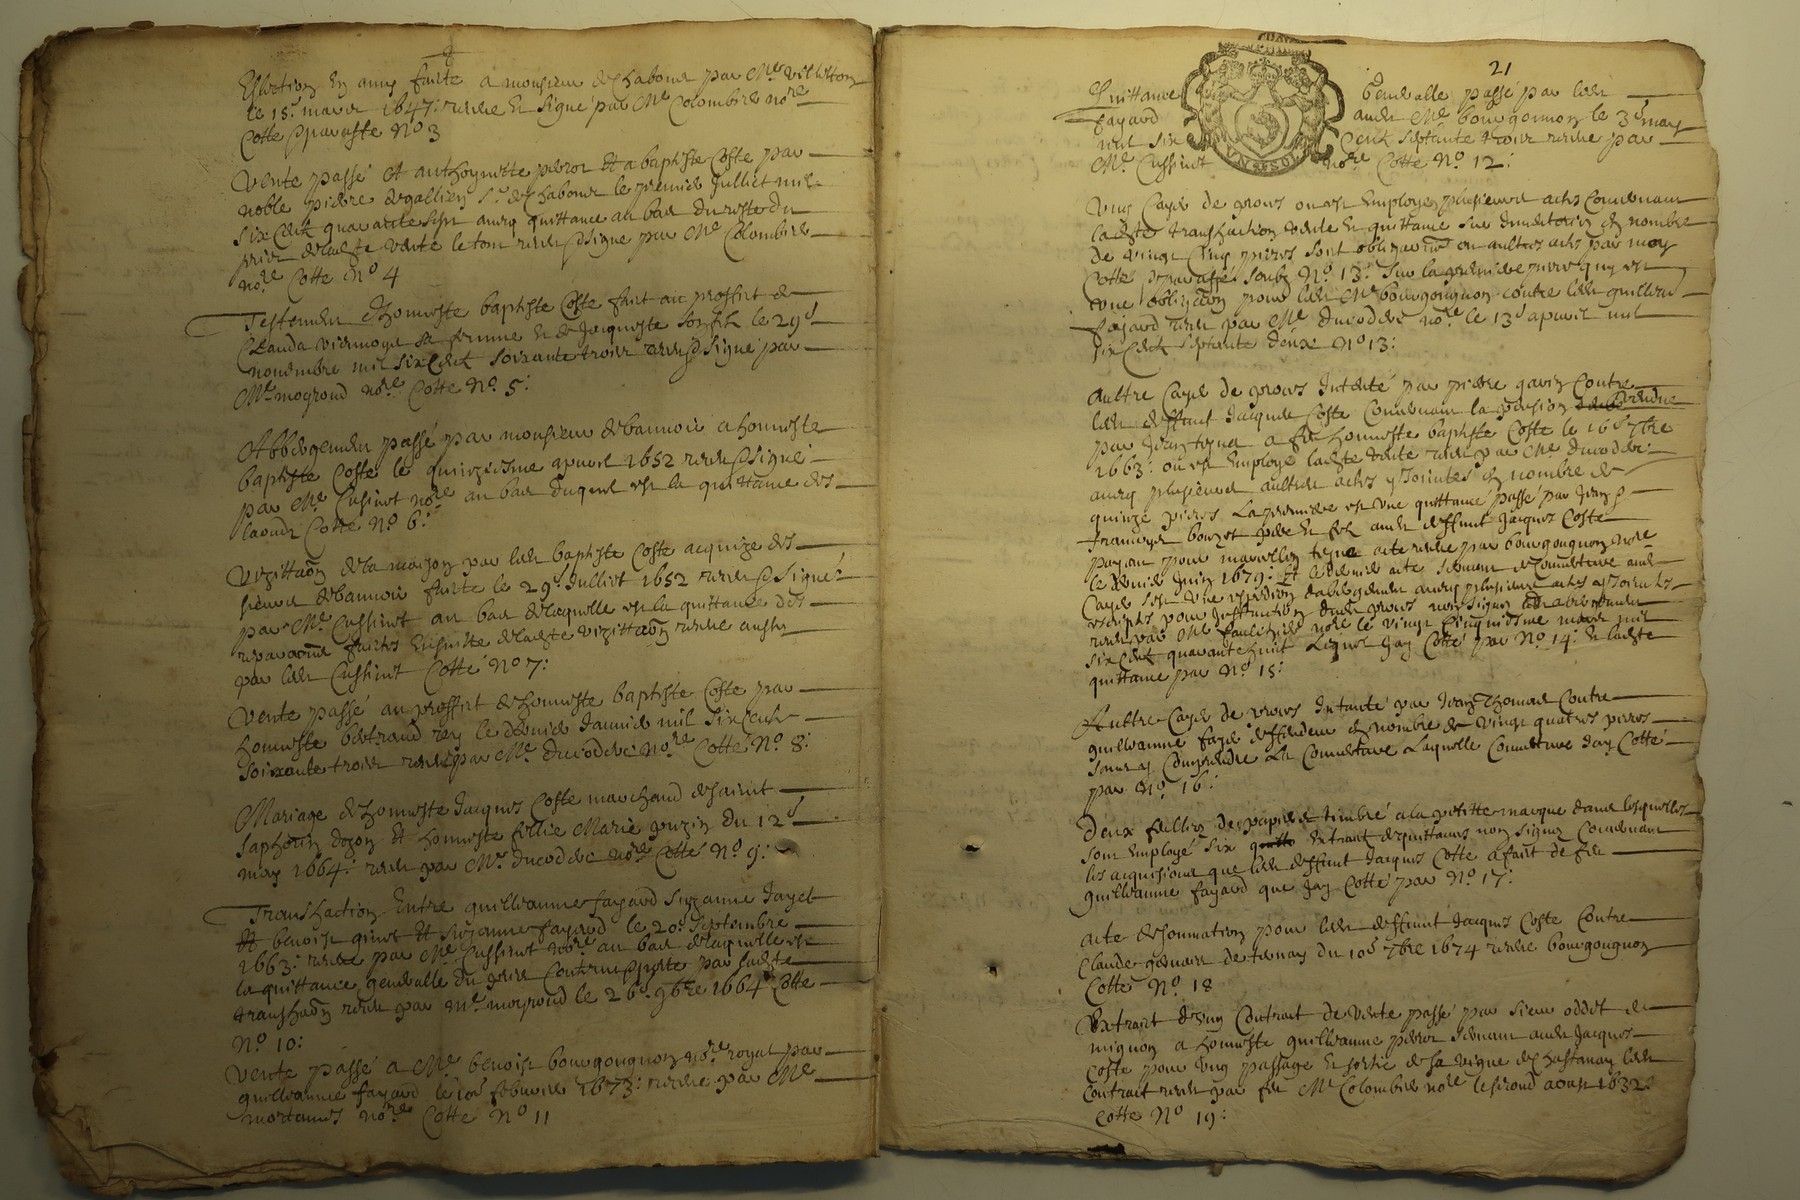 Eslection en amy faicte a monsieur de chabons par Mre
le 15e mars 1647: receue et signe par Me Colombié nore
Cotte parraffé No 3
Vente passé et anthoynette perrot et a baptiste Coste par
noble pierre de gallien Sr de chabons le premier Jullict mil
six Cent quarante sept avecq quittance au bas du reste du
prix de lade vente le tout receu signe par Me Colombié
nore Cotte No 4
Testement d'honneste baptiste Coste fait au proffict de
Clauda sa femme et de Jacqueste son fils le 29e
novembre mil six Cent soixante trois receu signe par
Me mogroud nore Cotte No 5:
Abbergement passé par monsieur de bannoir a honneste
baptiste Coste le quinziesme apvril 1652 receu signé
par Me Cussinet nore au bas duquel est la quittance des
laouds Cotte No 6:
Vizittaon de la maison par ledt baptiste Coste acquize des
sieurs de bannoir faicte le 29e Julliet 1652 receu signé
par Me Cussinet au bas de laquelle est la quittance des
reparaons faictes ensuitte de ladte vizittaon receue aussy
par ledt Cussinet Cotté No 7:
Vente passé au proffict de honneste baptiste Coste par
honneste bertrand rey le dernier Janvier mil six Cent
soixante trois receu par Me ducoderc nore Cotté No 8:
Mariage de honneste Jacques Coste marchand de sainct
saphorin dozon et honneste fillie Marie puzin du 12e
may 1664: receu par Me ducoderc nore Cotté No 9:
Transhaction Entre guilleaume fayard Suzanne Jayet
et benoist ginet et suzanne fayard le 20e Septembre
1663: receue par Me Cussinet nore au bas de laquelle est
la quittance generalle du prix Contenu porté par ladte
transhaon receu par Me mogroud le 26e 9bre 1664 Cotte
No 10:
Vente passé a Me benoist bourgougnon nore royal par
guilleaume fayard le 10e febvrier 1673: receue par Me
mortanes nore Cotte No 11
21
Quittance generalle passé par ledt
fayard audt Me bourgognon le 3e may
mil six Cent septante trois receue par
Me Cussinet nore Cotte No 12:
Ung Cayé de proces ou est Employé plusieurs actes Contenant
ladte transhaction vente et quittance sur Inventaire en nombre
de vingt Cinq pieces soit obligaons ou aultres actes par moy
Cotté parraffé soubz No 13: sur la premiere piece quy est
une obligaon pour ledt Me bourgougnon contre ledt guilleau
fayard receu par Me ducoderc nore le 13e apvril mil
six Cent septante deux No 13:
Aultre Cayé de proces Intenté par pierre gavin Contre
ledt deffunt Jacques Coste Contenant la pention vendue
par Jean a feu honneste baptiste Coste le 16e 7bre
1663: ou est Employé ladte vente receu par Me ducoderc
avecq plusieurs aultres actes y Joinctes en nombre de
quinze pieces La premiere est une quittance passé par Jean
francoys bouzet pere et fils audt deffunt Jacques Coste
payan pour marcellin acte receue par bourgougnon nore
le dernier Juin 1679: Et le dernier acte servant de Couverture audt
Cayé est une d'abbergement avecq plusieurs actes y Joincts
escripts pour Instruction dudt proces non signé
receu par Me nore le vingt Cinquiesme mars mil
six Cent quarante huict Lequel Jay Cotté par No 14: Et ladte
quittance par No 15:
Aultre Cayé de proces Intanté par Jean Thomas Contre
guilleaume fayé deffendeur en nombre de vingt quatre pieces
sans y Comprendre La Couverture Laquelle Couverture Jay Cotté
par No 16:
Deux fellies de papier timbré a la petitte marque dans lesquelles
sont Employé six Extraict de quittances non signez Contenant
les acquisions que ledt deffunt Jacques Cotte a fait de feu
guilleaume fayard que Jay Cotté par No 17:
acte de sommation pour ledt deffunt Jacques Coste Contre
Claude de ternay du 10e 7bre 1674 receue bourgougnon
Cotté No 18
Extrait d'ung Contrait de vente passé par sieur oddet de
mignon a honneste guilleaume perrot servant audt Jacques
Coste pour ung passage et sortie de sa vigne de chastanay ledt
Contrait receu par feu Me Colombié nore le segond aoust 1632:
Cotte No 19: